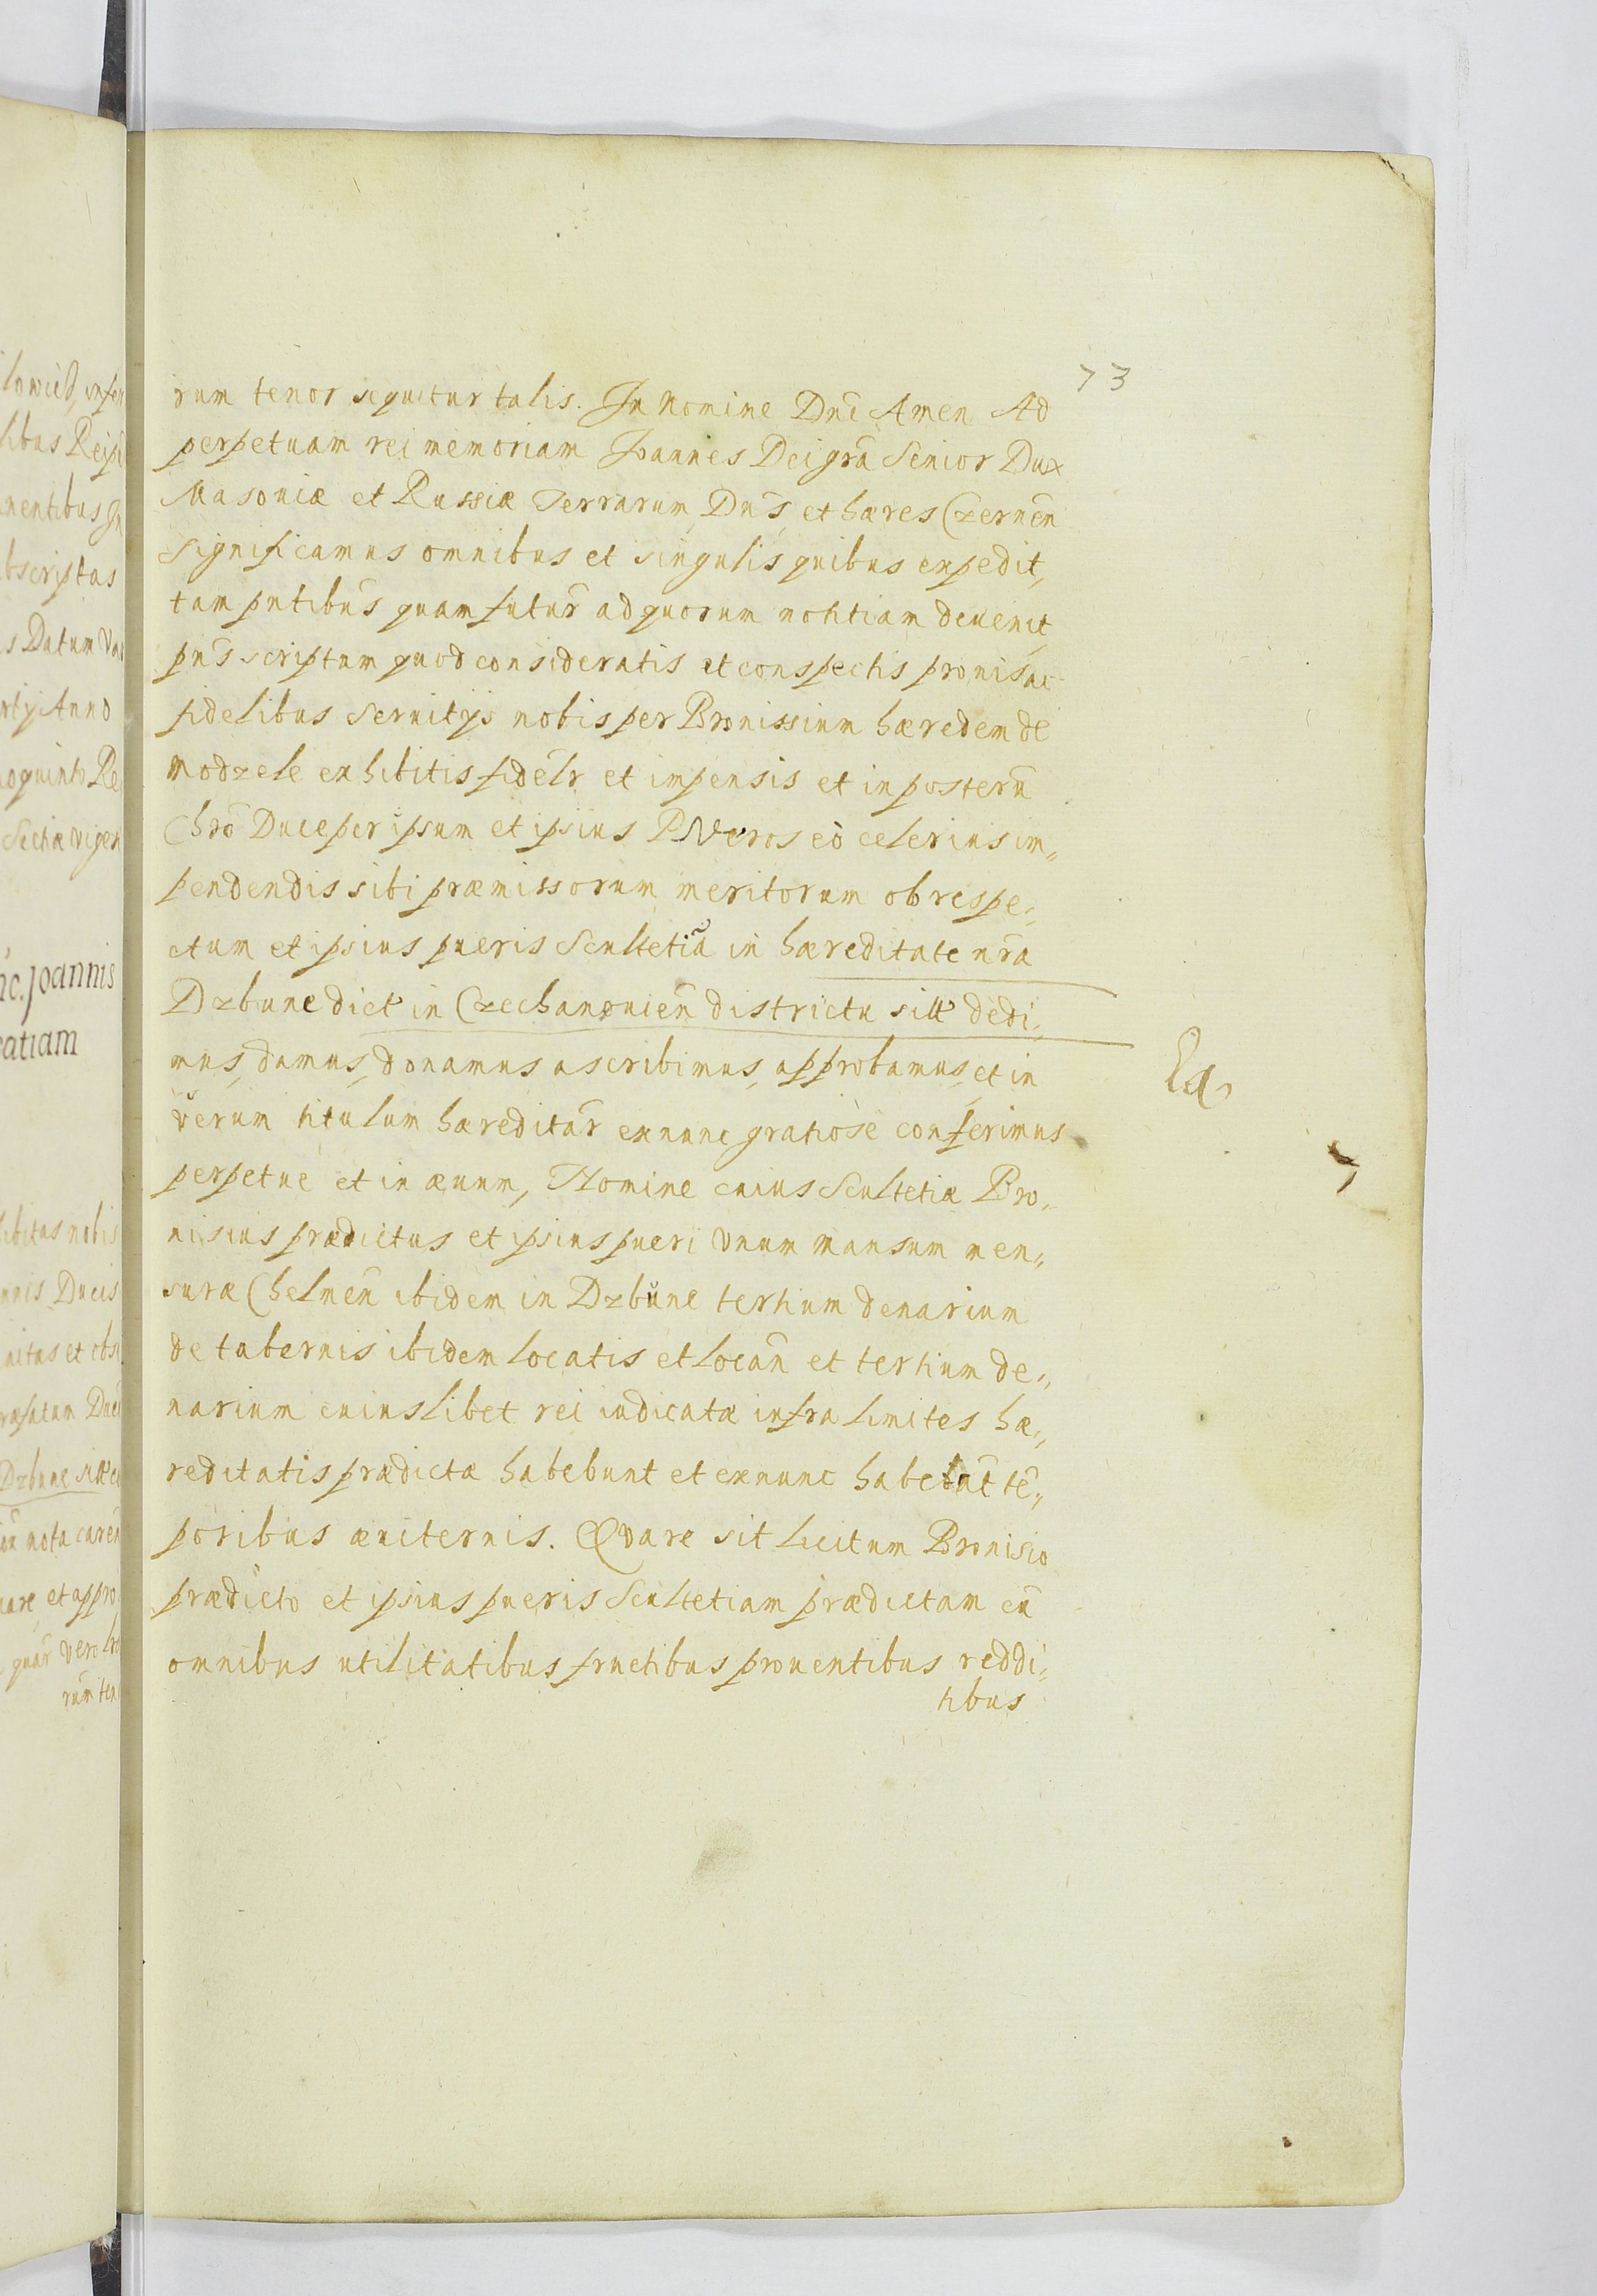 73
rum tenor sequitur talis. In Nomine Dnĩ Amen Ad
perpetuam rei memoriam Joannes Dei grã Senior Dux
Masoviæ et Russiæ Terrarum Dns̃ et hæres Czernen̄
Significamus omnibus et singulis quibus expedit,
tam pntibus̃ quam futur̃ ad quorum notitiam devenit
pns̃ scriptum quod consideratis et conspectis pronis ac
fidelibus Seruitijs nobis per Bronissium hæredem de
Modzele exhibitis fidelr̃ et impensis et in posterũ
Chrõ Duce per ipsum et ipsius PVeros eò celerius im„
pendendis sibi præmissorum meritorum ob respe„
ctum et ipsius pueris Scultetiã in hæreditate nrã
Dzbune dict in Czechanouien̄ districtu sitt dedi„
mus, damus, donamus ascribimus, approbamus, et in
verum titulum hæreditar̃ exnunc gratiosè conferimus
La
perpetue et in æuum, Nomine cuius Scultetiæ Bro„
nisius prædictus et ipsius pueri Vnum mansum men„
suræ Chelmen̄ ibidem in Dzbune tertium denarium
de tabernis ibidem locatis et locan̄ et tertium de„
narium cuiuslibet rei iudicatæ infra limites hæ„
reditatis prædictæ habebunt et exnunc habebũt tẽ„
poribus æuiternis. QVare sit licitum Bronisio
prædicto et ipsius pueris Scultetiam prædictam cũ
omnibus utilitatibus fructibus prouentibus reddi„
tibus